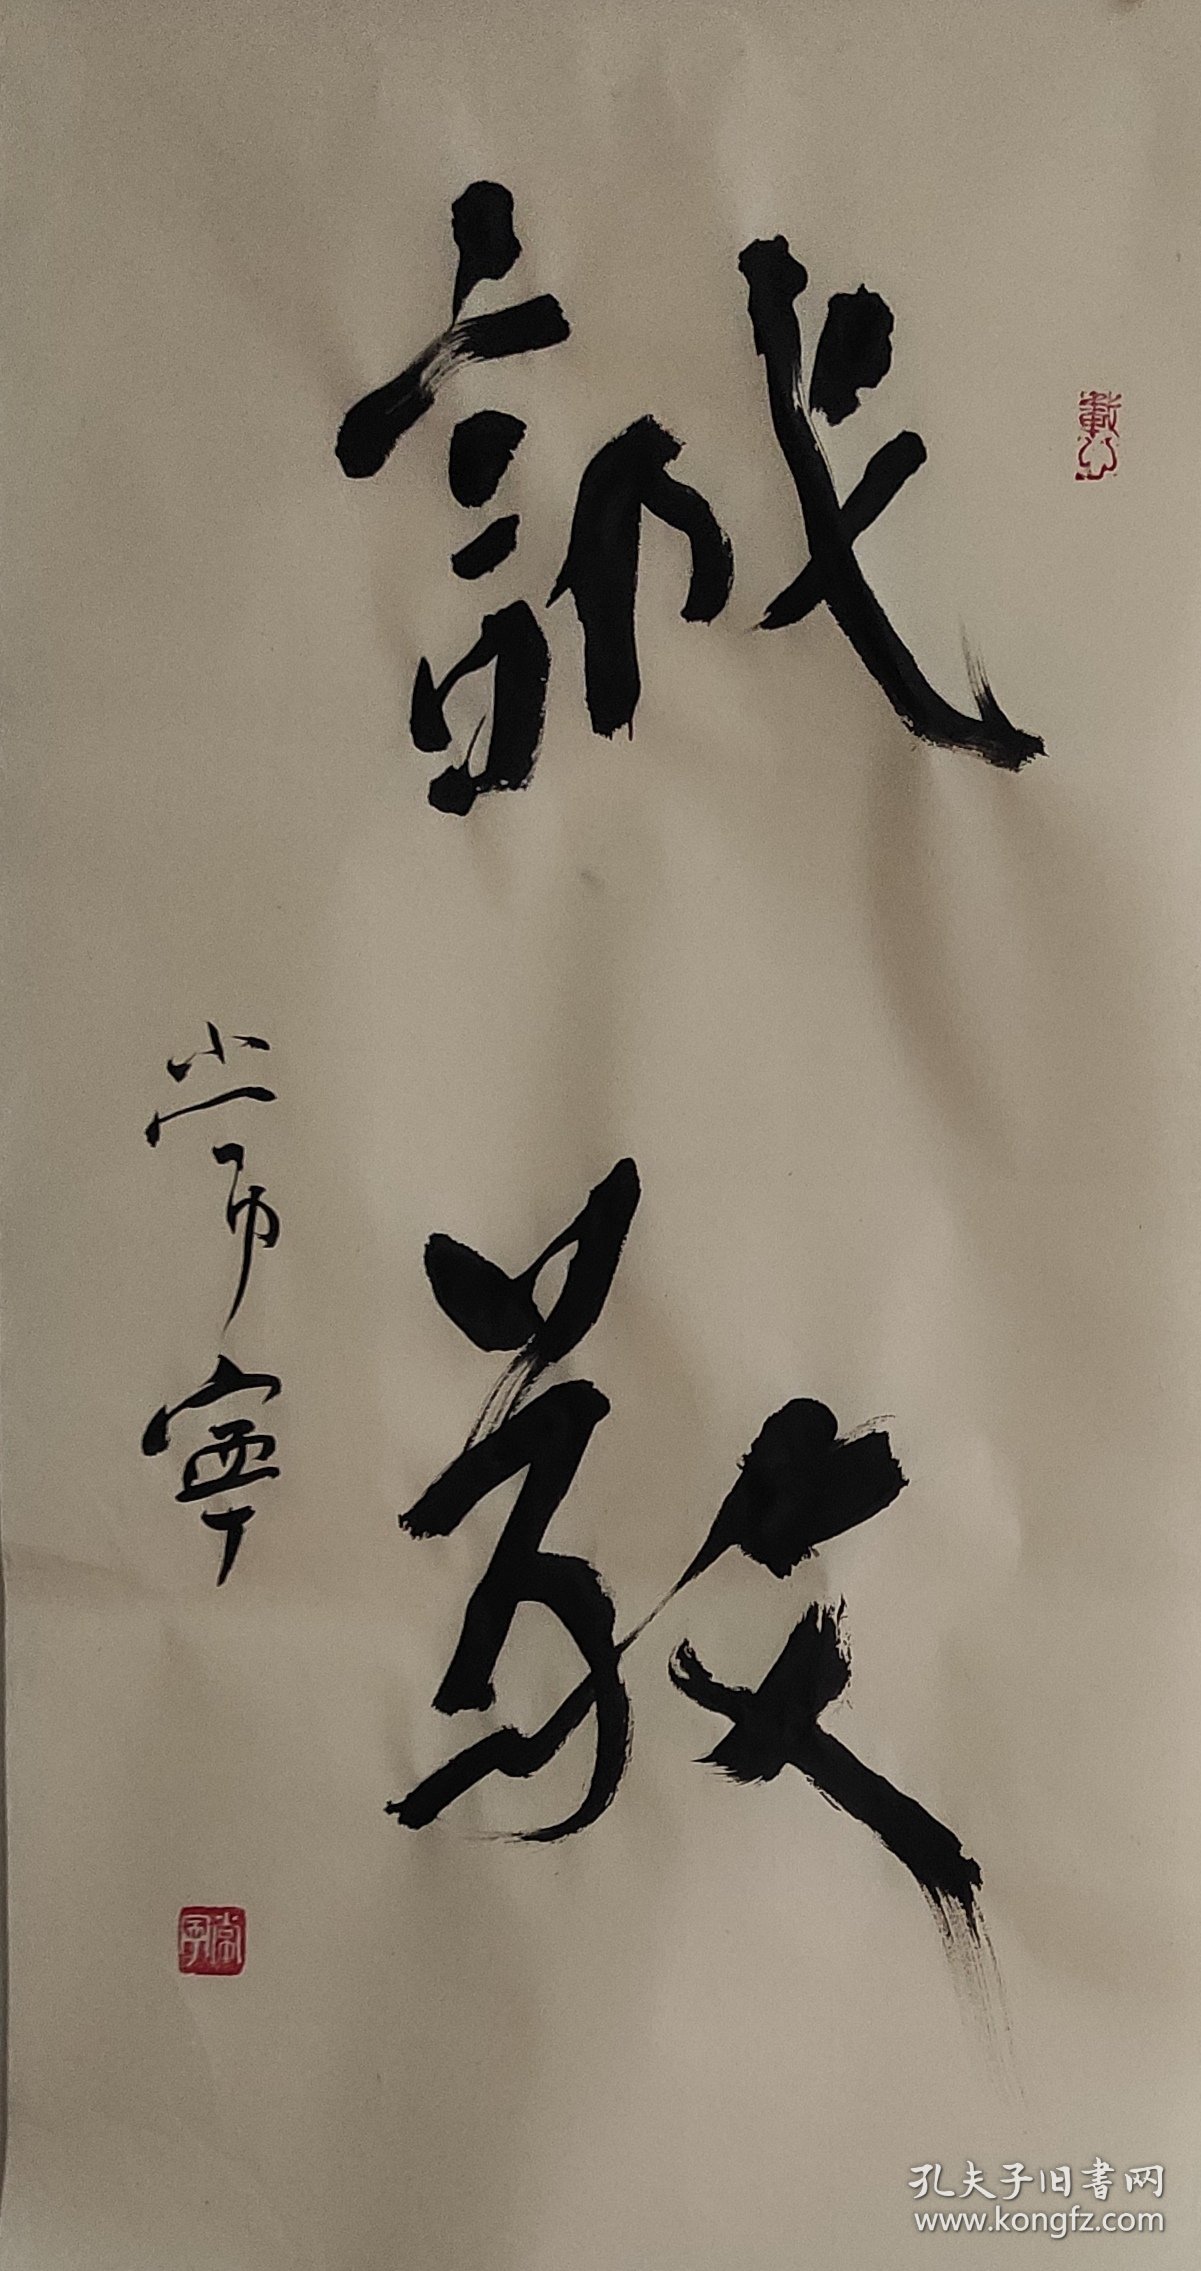 誠敬
常寧
孔夫子旧書网
www.kongfz.com